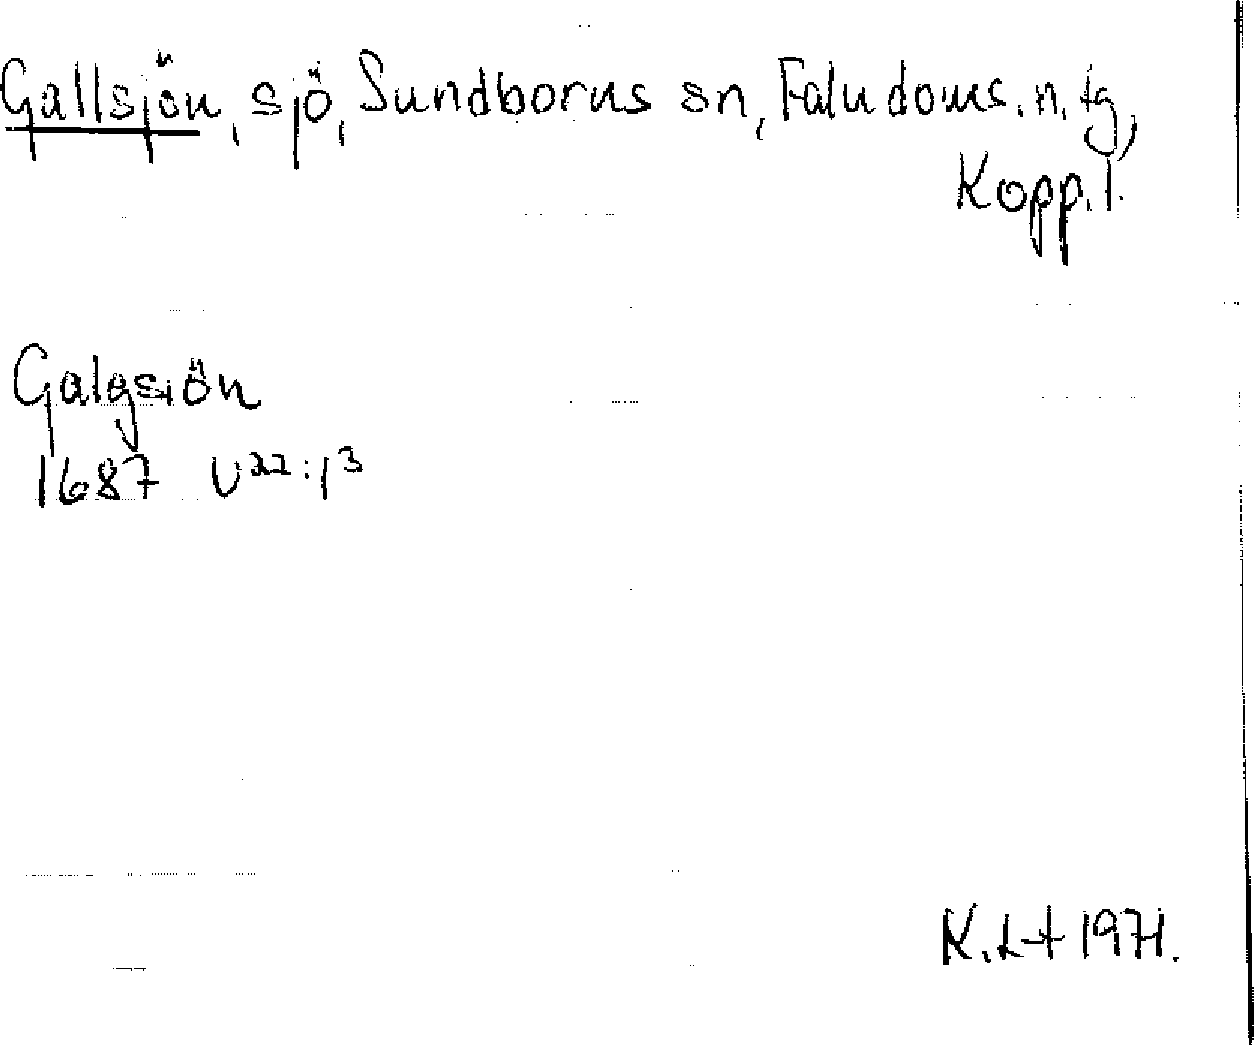 Gallsjön, sjö, Sundborns sn, Falu doms. n. tg,
Kopp. l.
Galgsiön
1687 U22:13
K. L-t 1971.